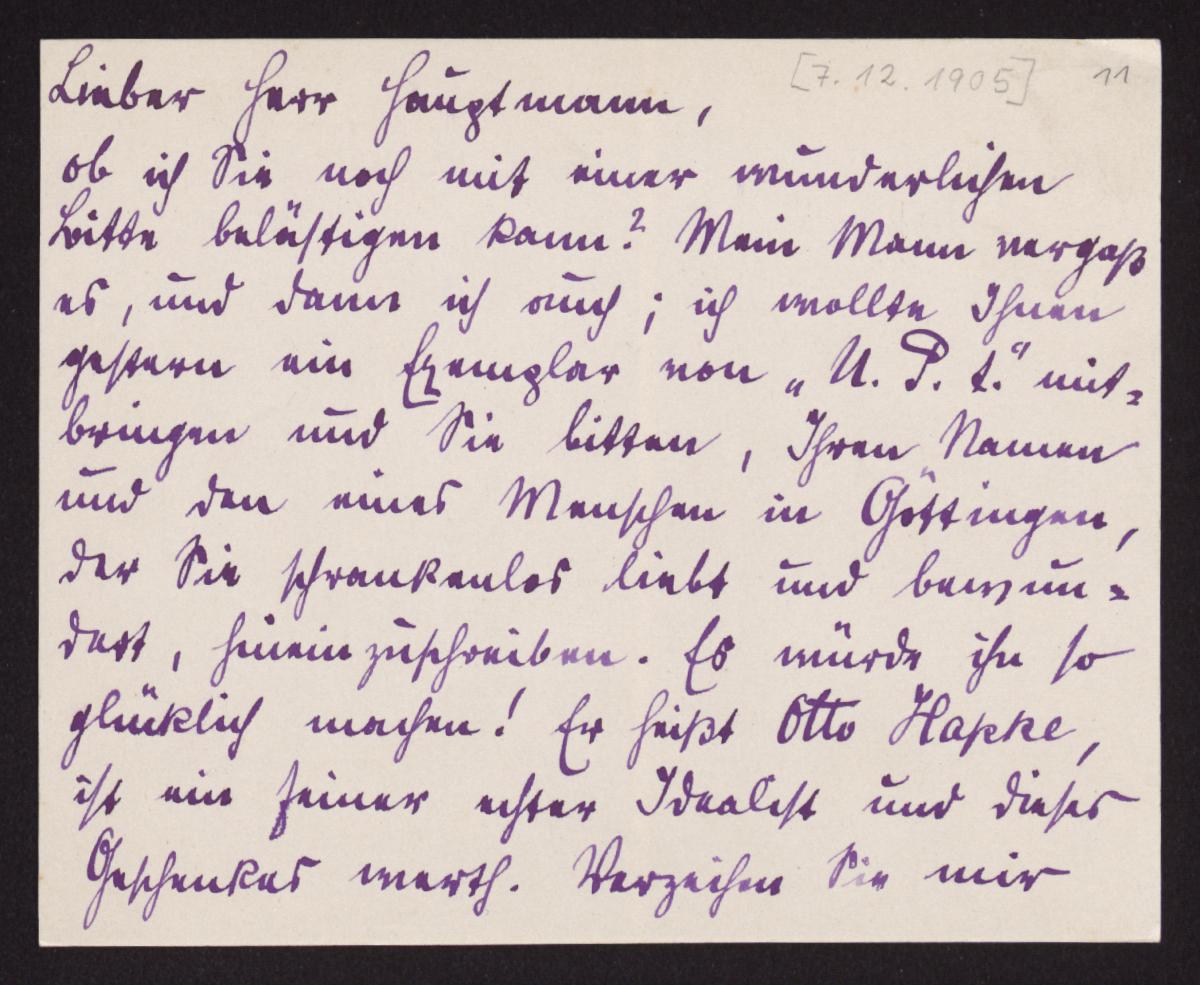 [7. 12. 1905] 11
Lieber Herr Hauptmann,
ob ich Sie noch mit einer wunderlichen
Bitte belästigen kann? Mein Mann vergaß
es, und dann ich auch; ich wollte Ihnen
gestern ein Exemplar von „U. P. t.“ mit=
bringen und Sie bitten, Ihren Namen
und den eines Menschen in Göttingen,
der Sie schrankenlos liebt und bewun=
dert, hineinzuschreiben. Es würde ihn so
glücklich machen! Er heißt Otto Hapke,
ist ein feiner echter Idealist und dieses
Geschenkes werth. Verzeihen Sie mir